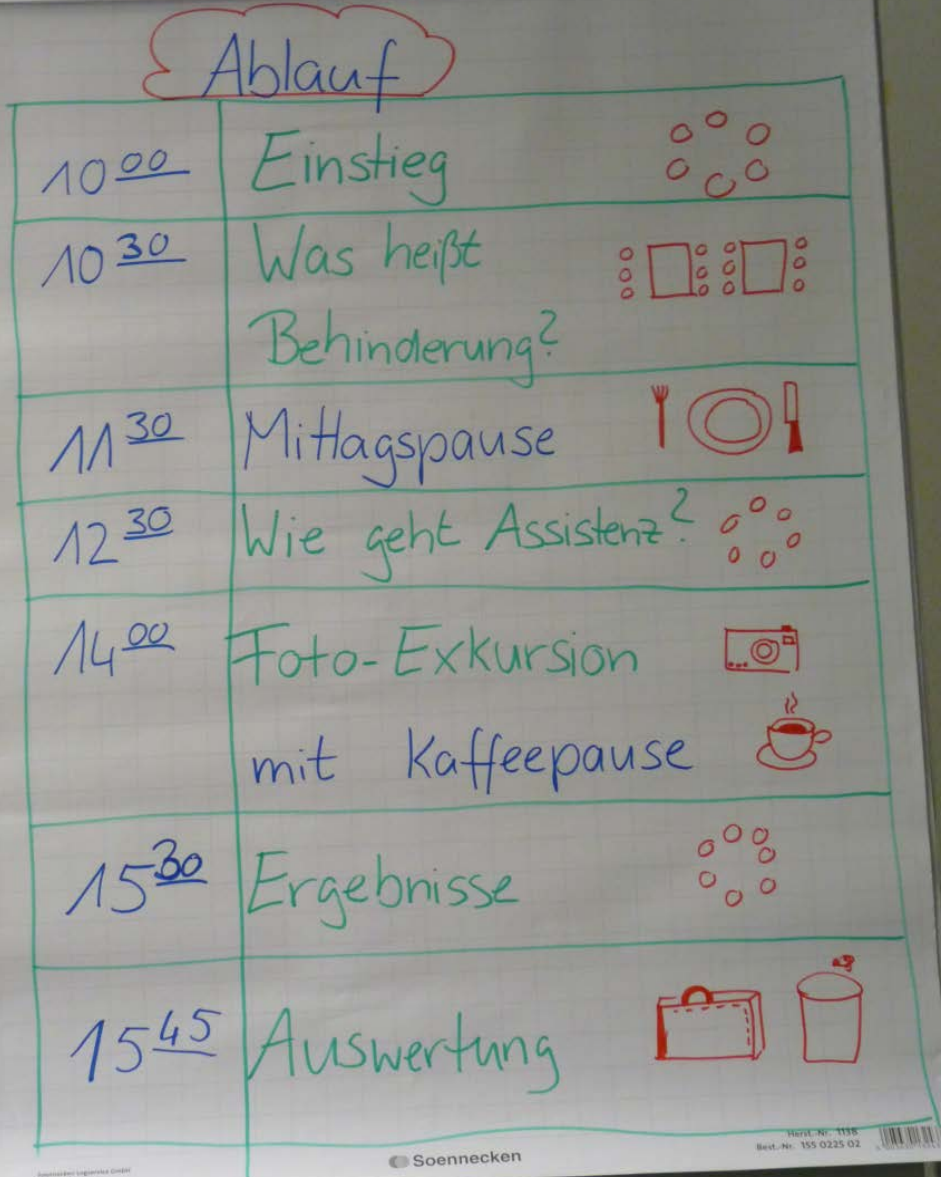 Ablauf
10 00 Einstieg
10 30 Was heißt
Behinderung?
11 30 Mittagspause
12 30 Wie geht Assistenz?
14 00 Foto-Exkursion
mit Kaffeepause
15 30 Ergebnisse
15 45 Auswertung
Soennecken
Herst.-Nr. 1138
Best.-Nr. 155 0225 02